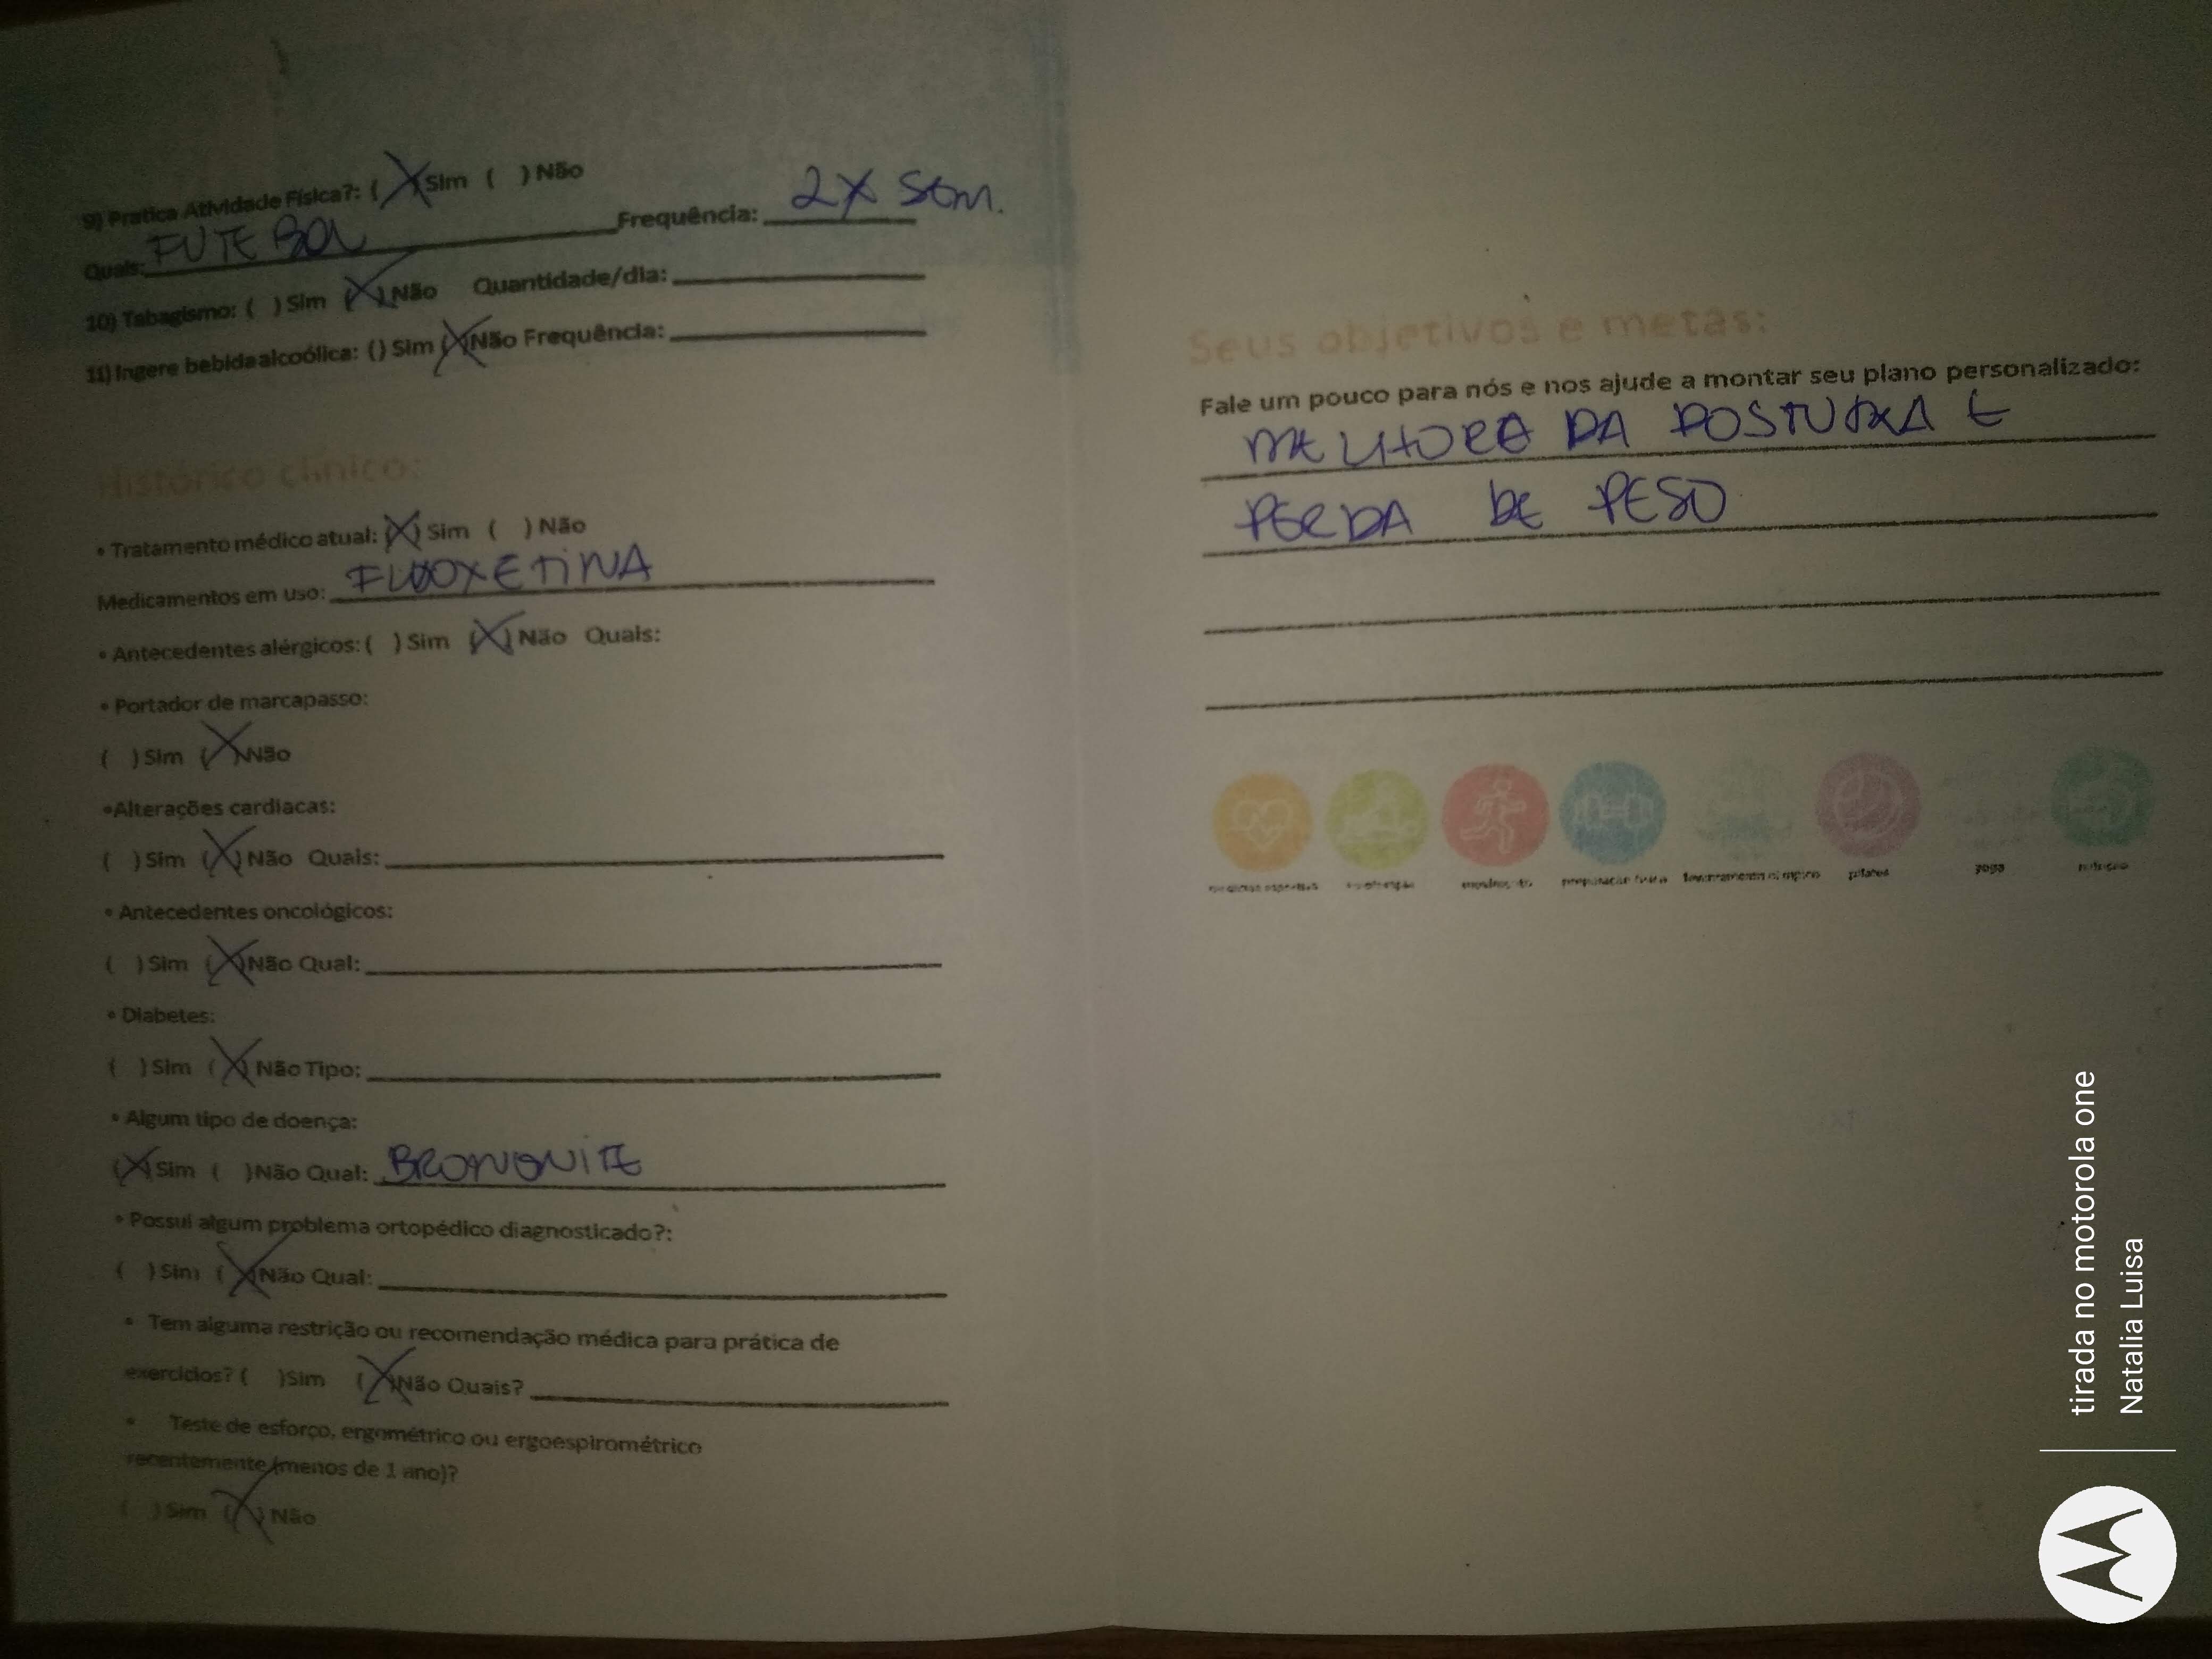 9) Pratica Atividade Física?: (X) Sim ( ) Não
Qual: FUTEBOL Frequência: 2X SEM.
10) Tabagismo: ( ) Sim (X) Não Quantidade/dia:
11) Ingere bebida alcoólica: () Sim (X) Não Frequência:
Histórico clínico:
• Tratamento médico atual: (X) Sim ( ) Não
Medicamentos em uso: FLUOXETINA
• Antecedentes alérgicos: ( ) Sim (X) Não Quais:
• Portador de marcapasso:
( ) Sim (X) Não
• Alterações cardíacas:
( ) Sim (X) Não Quais:
• Antecedentes oncológicos:
( ) Sim (X) Não Qual:
• Diabetes:
( ) Sim (X) Não Tipo:
• Algum tipo de doença:
(X) Sim ( ) Não Qual: BRONQUITE
• Possui algum problema ortopédico diagnosticado?:
( ) Sim (X) Não Qual:
• Tem alguma restrição ou recomendação médica para prática de
exercícios? ( ) Sim (X) Não Quais?
• Teste de esforço, ergométrico ou ergoespirométrico
recentemente (menos de 1 ano)?
( ) Sim (X) Não
Seus objetivos e metas:
Fale um pouco para nós e nos ajude a montar seu plano personalizado:
MELHORA DA POSTURA E
PERDA DE PESO
pilates
yoga
tirada no motorola one
Natalia Luisa